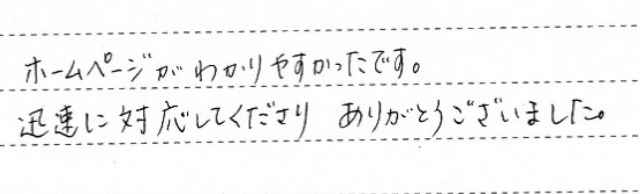 ホームページがわかりやすかったです。
迅速に対応してくださり ありがとうございました。